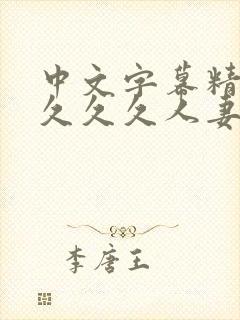 中文字幕精
久久久人妻
李唐王